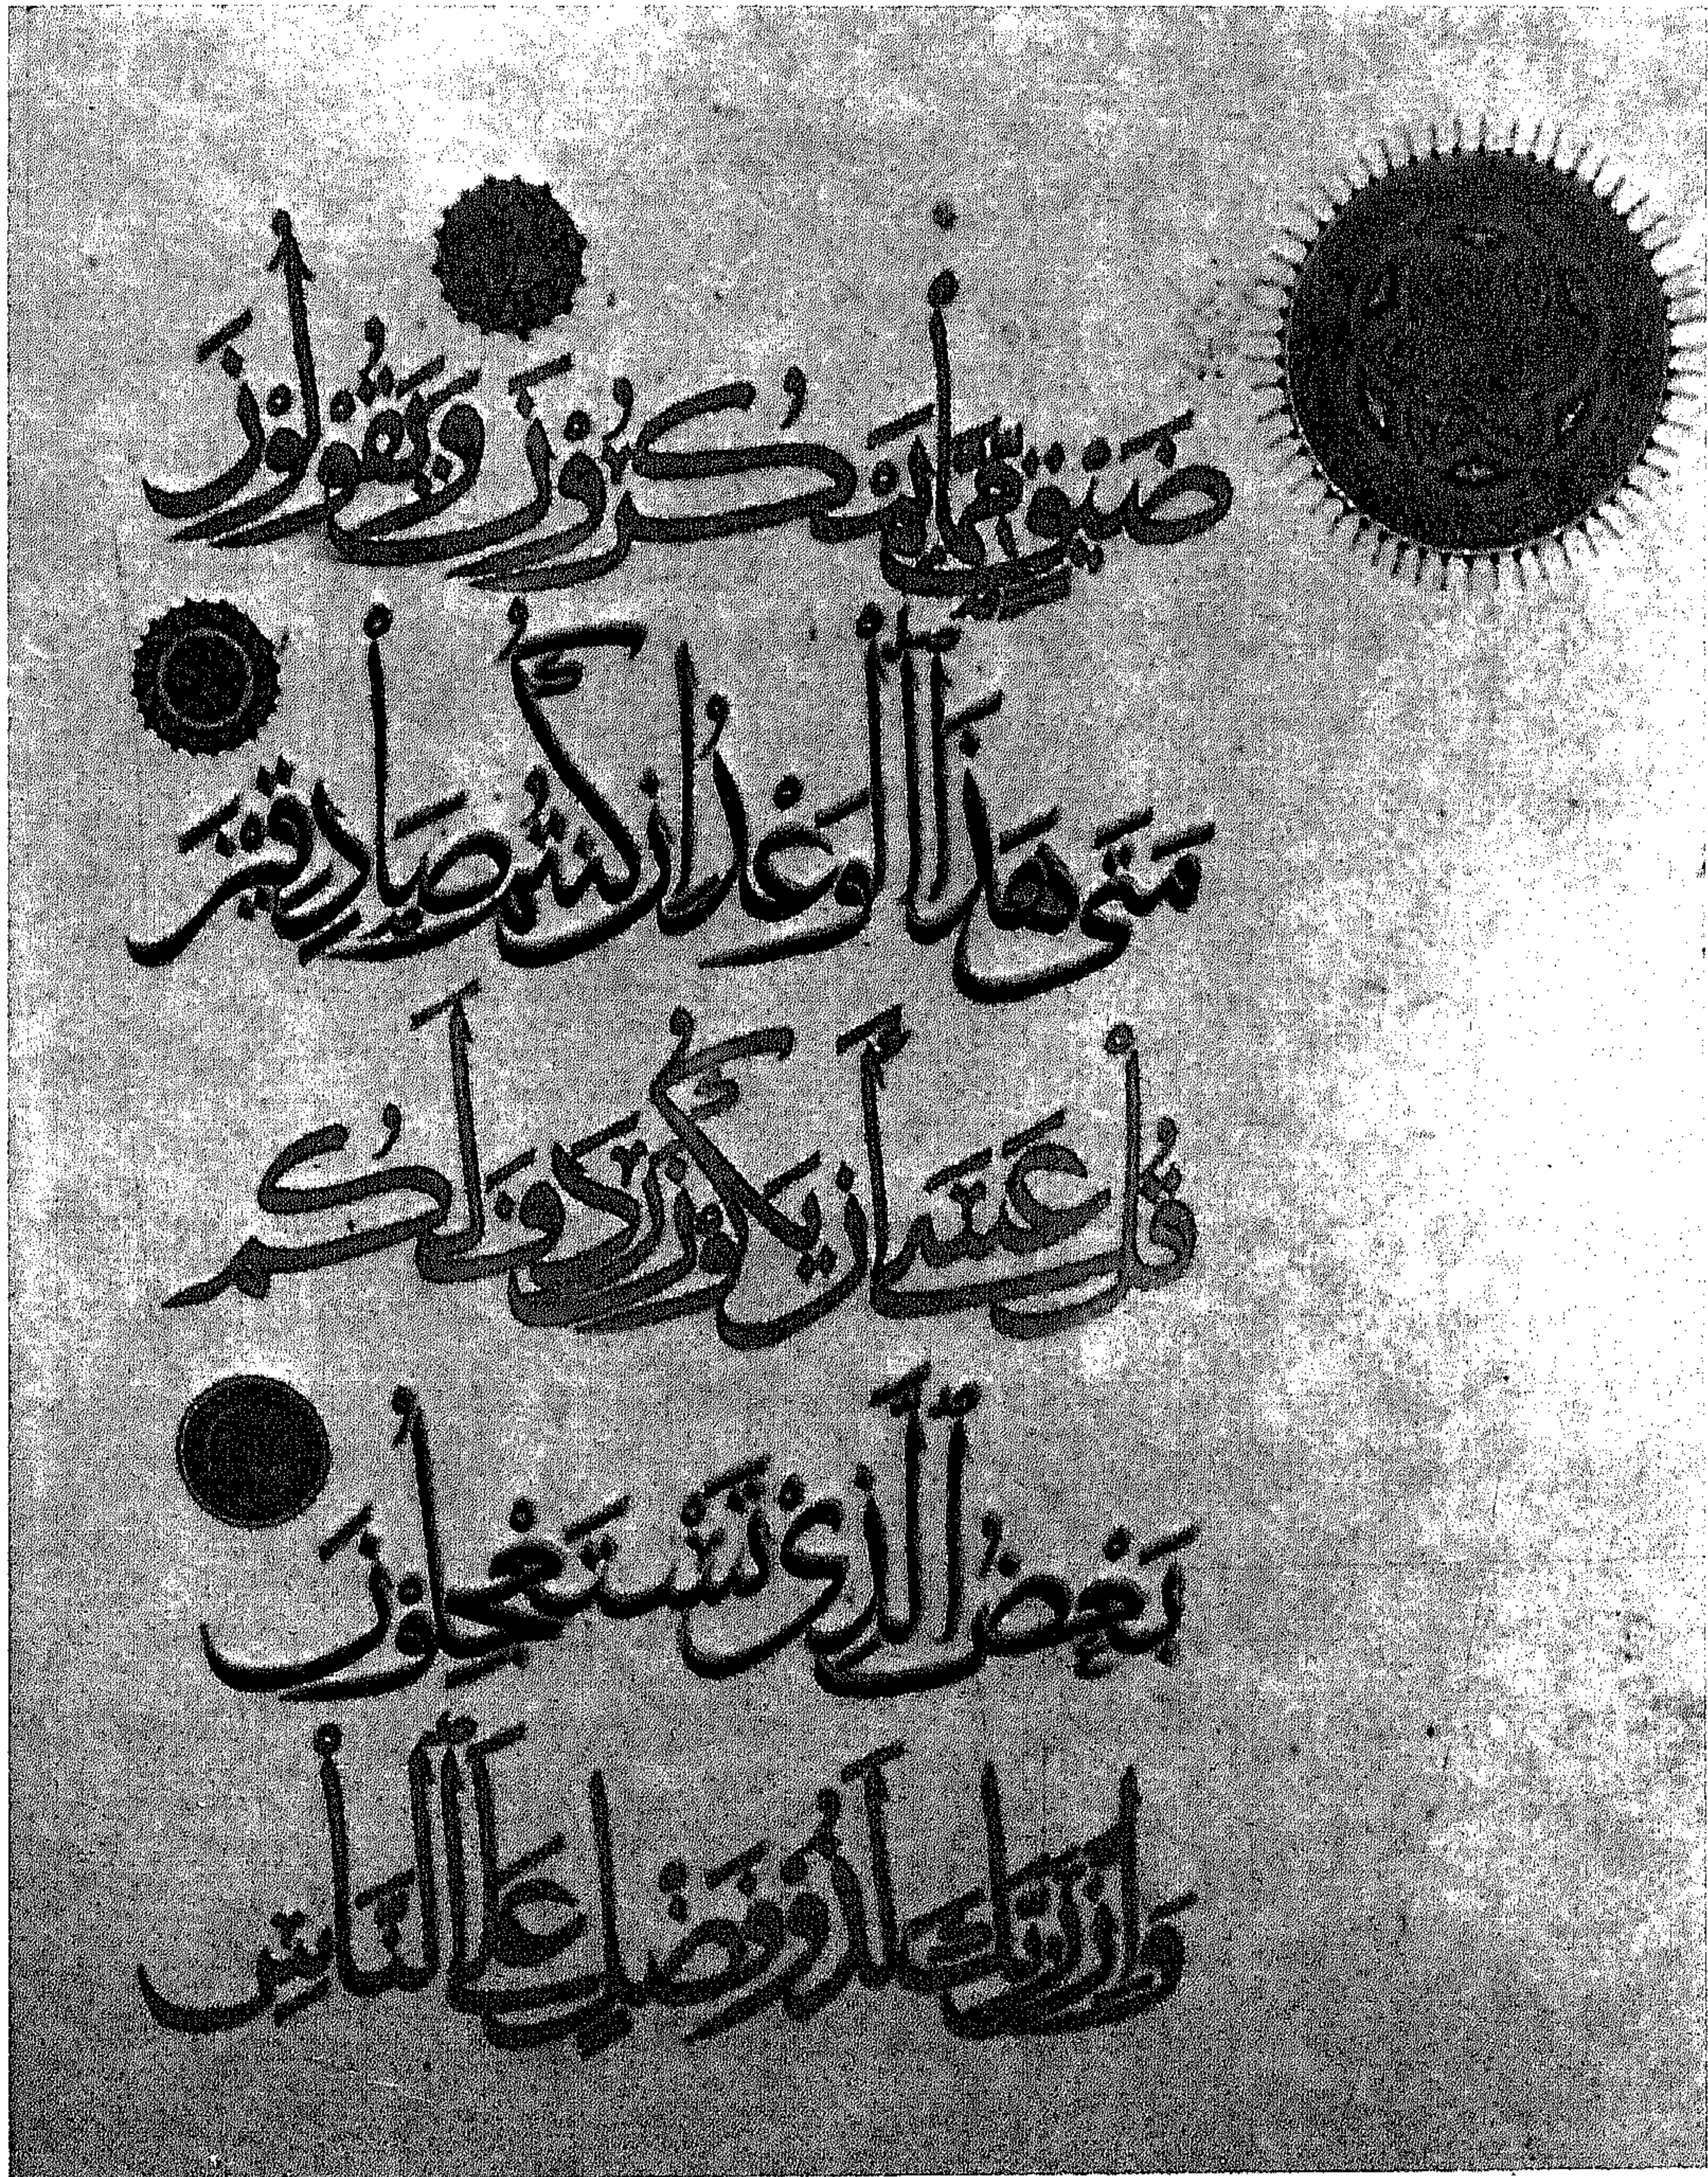 ضَيْقٍ مِّمَّا يَمْكُرُونَ وَيَقُولُونَ
مَتَى هَذَا الْوَعْدُ إِن كُنتُمْ صَادِقِينَ
قُلْ عَسَى أَن يَكُونَ رَدِفَ لَكُم
بَعْضُ الَّذِي تَسْتَعْجِلُونَ
وَإِنَّ رَبَّكَ لَذُو فَضْلٍ عَلَى النَّاسِ